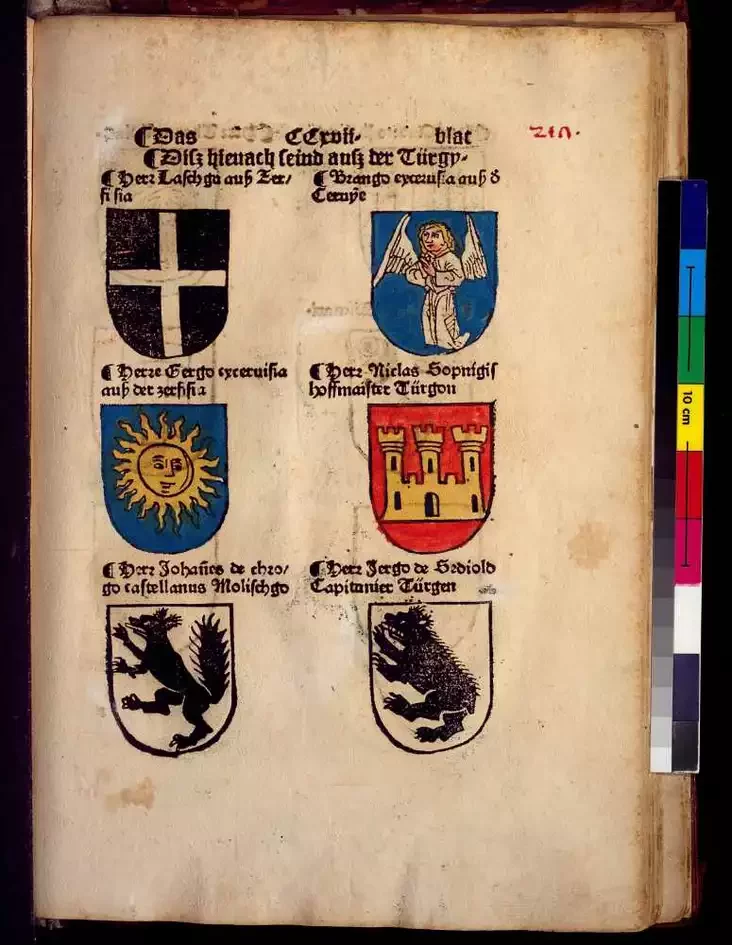 Das CCxvii· blat
Disz hienach seind ausz der Türgy·
Herr Laschga auß Zer/
si sia
Brango exceruisia auß ð
Ceruye
Herre Gergo exceruisia
auß der zerssia
Herr Niclas Sopnigis
hoffmaister Türgon
Herr Johañes de chro/
go castellanus Molischgo
Herr Jergo de Srdiold
Capitanier Türgen
10 cm